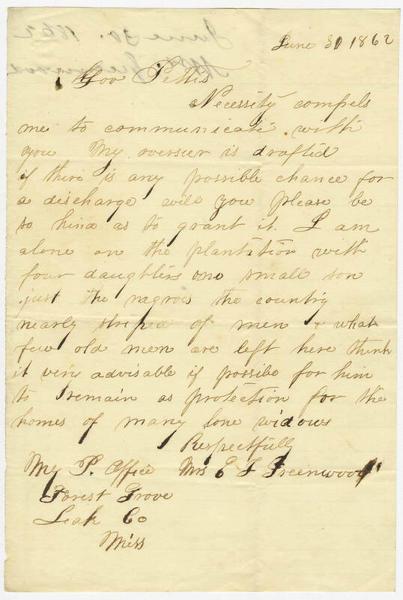 June 30 1862
Gov Pettis
Necessity compels
me to communicate with
you My overseer is drafted
if there is any possible chance for
a discharge will you please be
so kind as to grant it. I am
alone on the plantation with
four daughters one small son
just the negroes the country
nearly striped of men & what
few old men are left here think
it very advisable if possibe for him
to remain as protection for the
homes of many lone widows
Respectfully
My P. Office Mrs E F Greenwood
Forest Grove
Leak Co
Miss